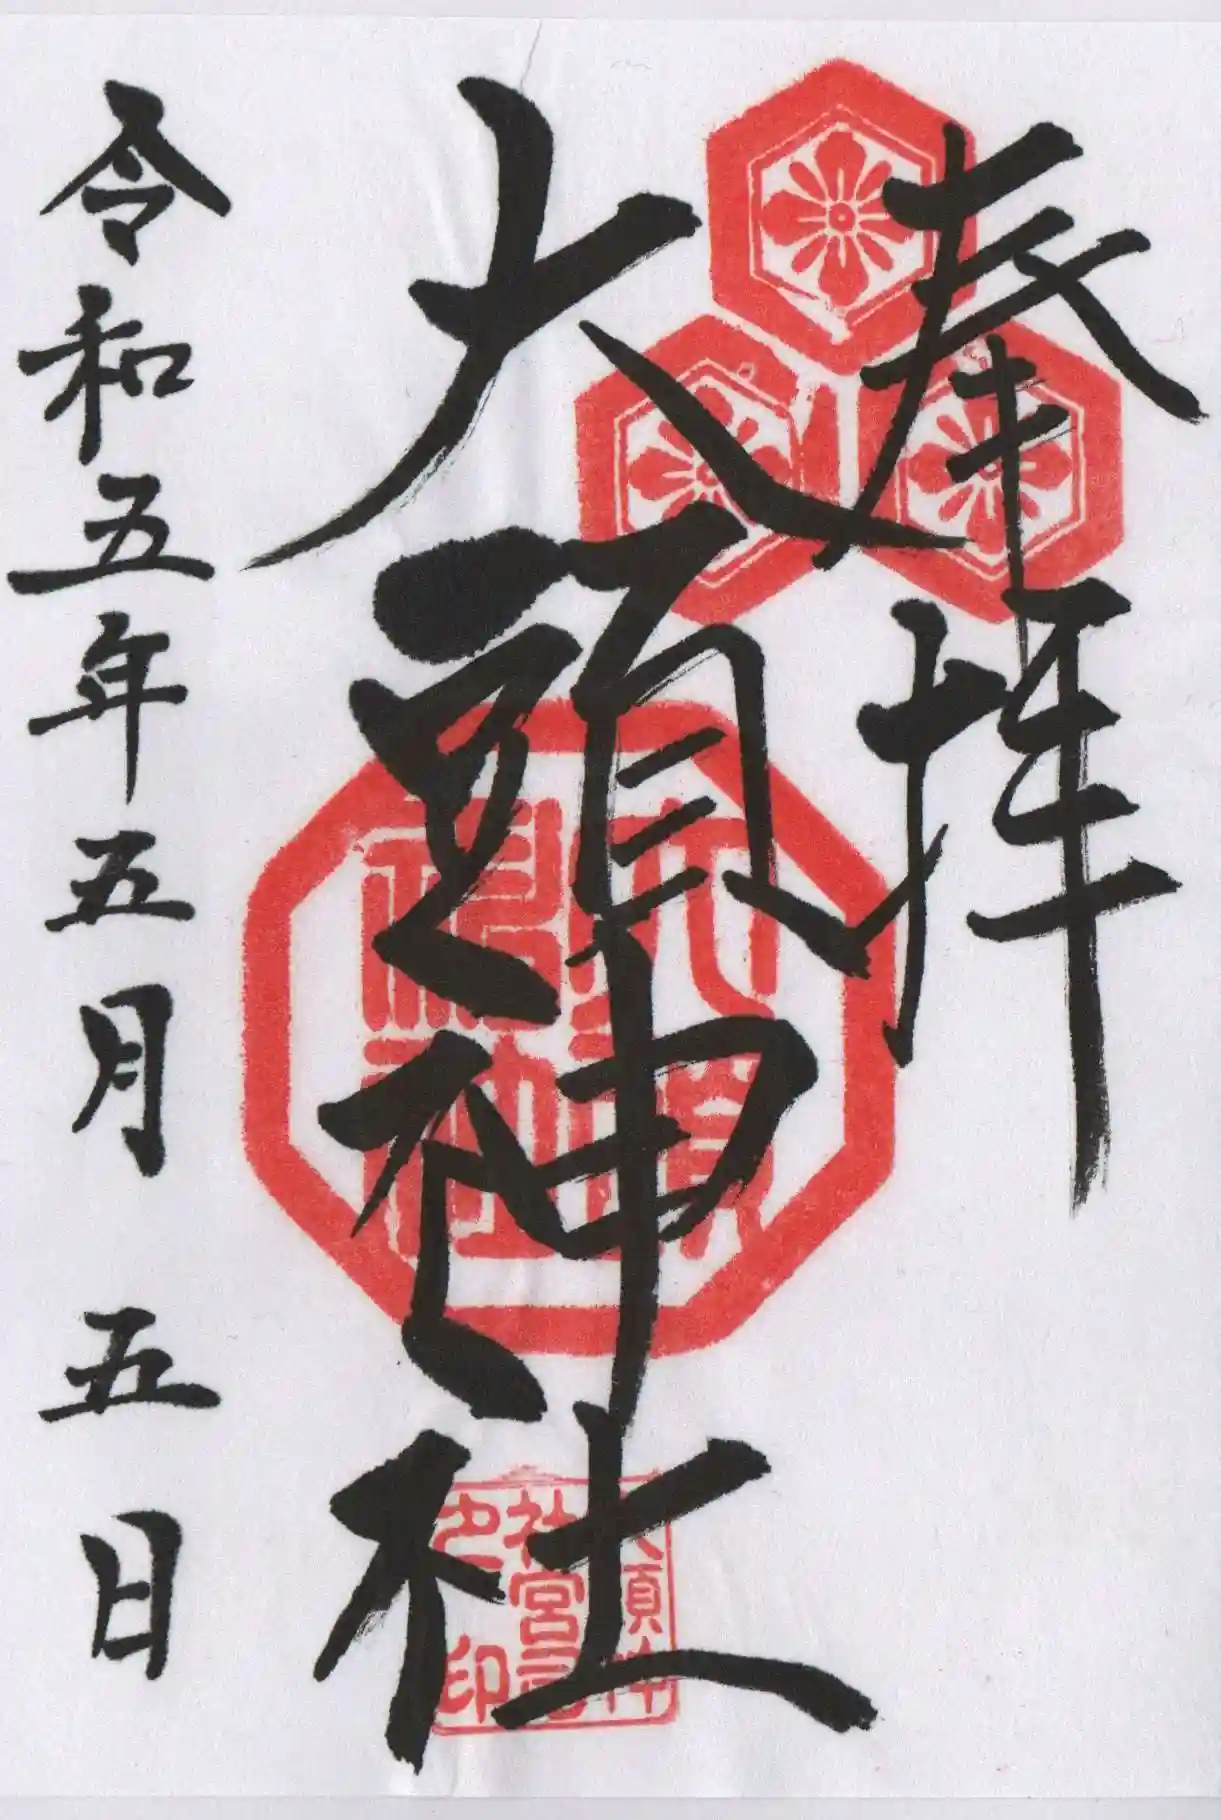 奉拝
大頭神社
令和五年五月五日
大頭神社
大頭神社宮司之印